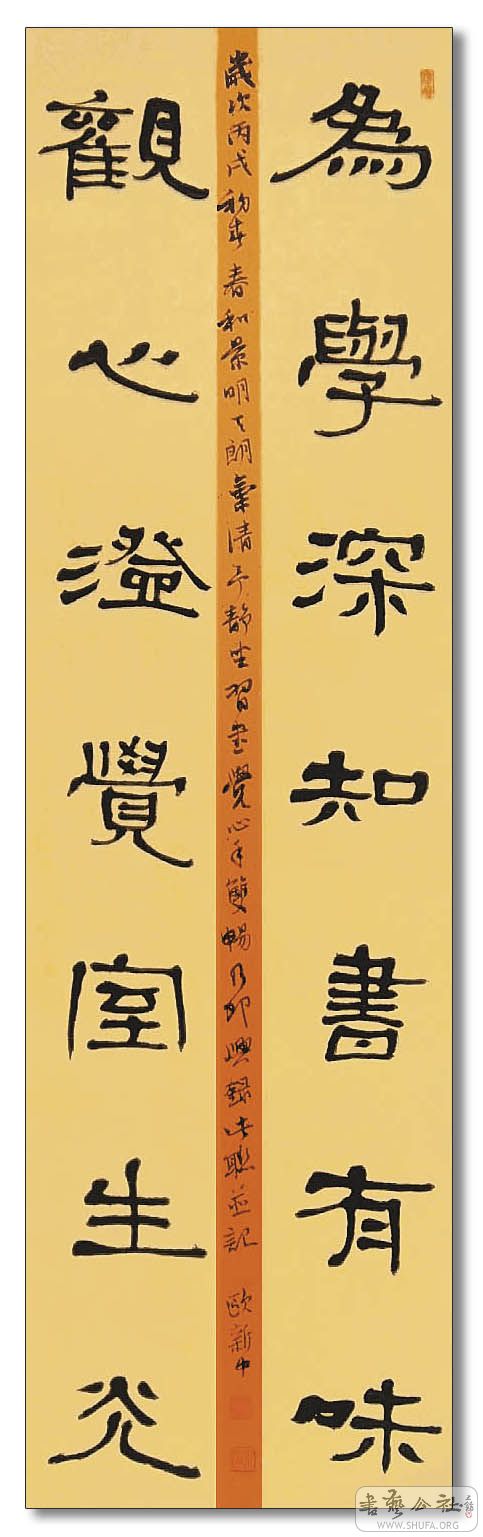 為學深知書有味
觀心澄覺室生光
歲次丙戌初春春和景明天朗氣清予靜坐習書覺心手雙暢乃即興錄此聯並記 歐新中
書藝公社
WWW.SHUFA.ORG